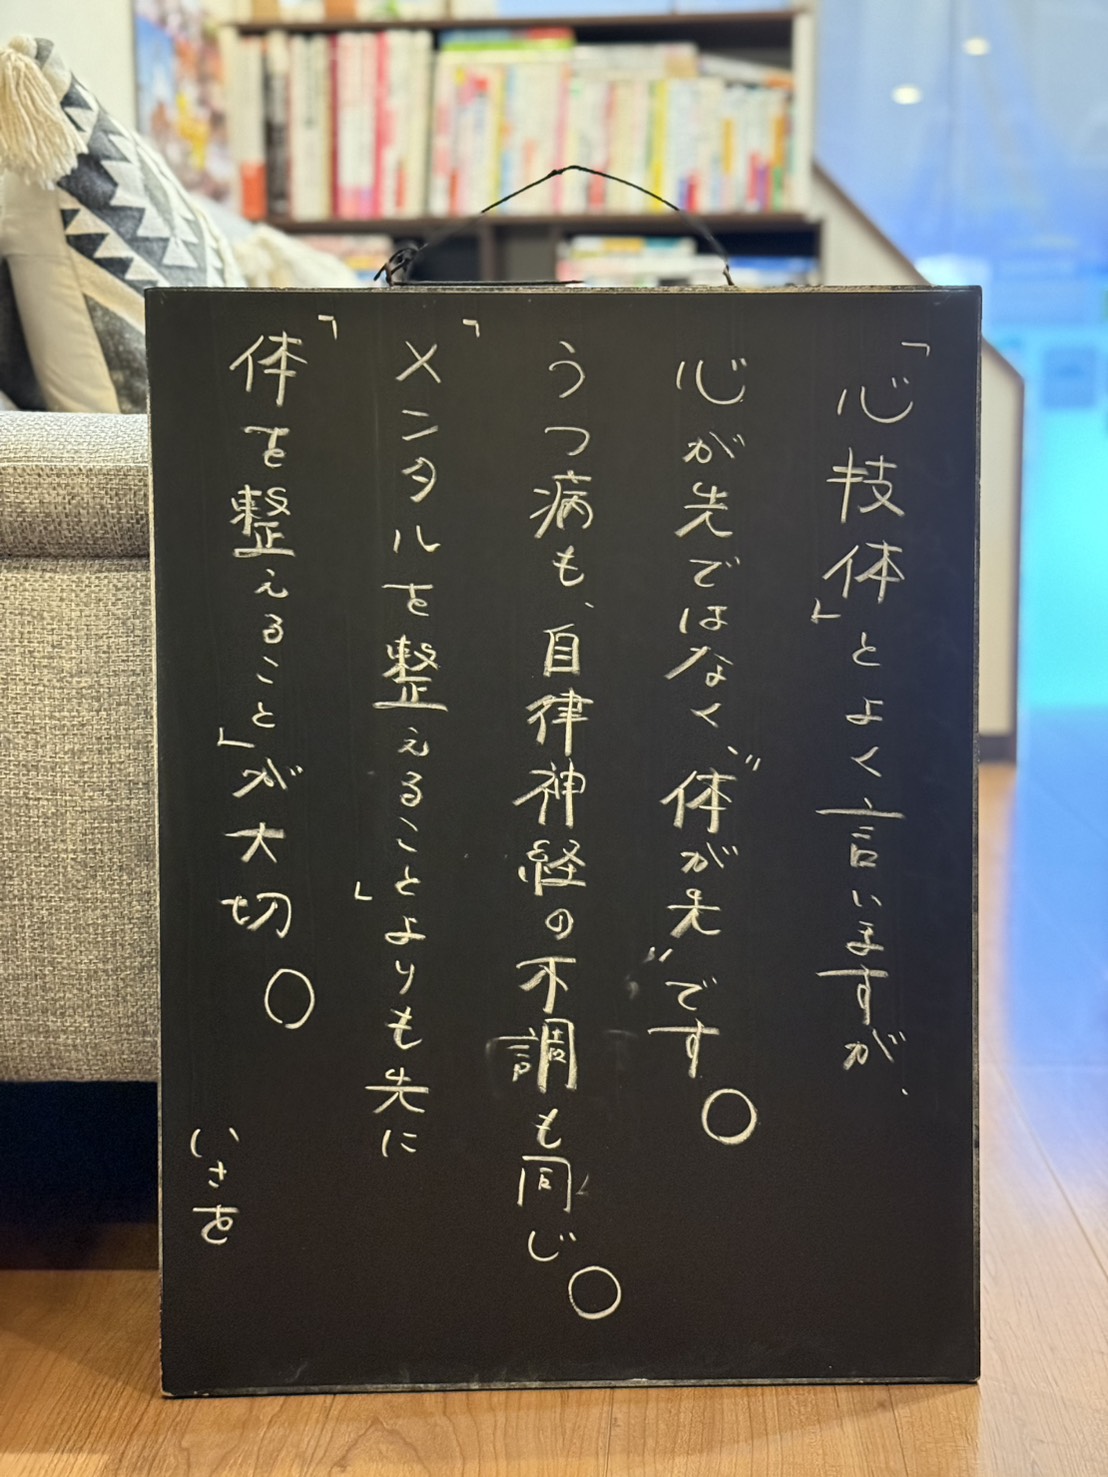 「心技体」とよく言いますが、
心が先ではなく、"体が先"です。
うつ病も、自律神経の不調も同じ。
「メンタルを整えること」よりも先に
「体を整えること」が大切。
いさを